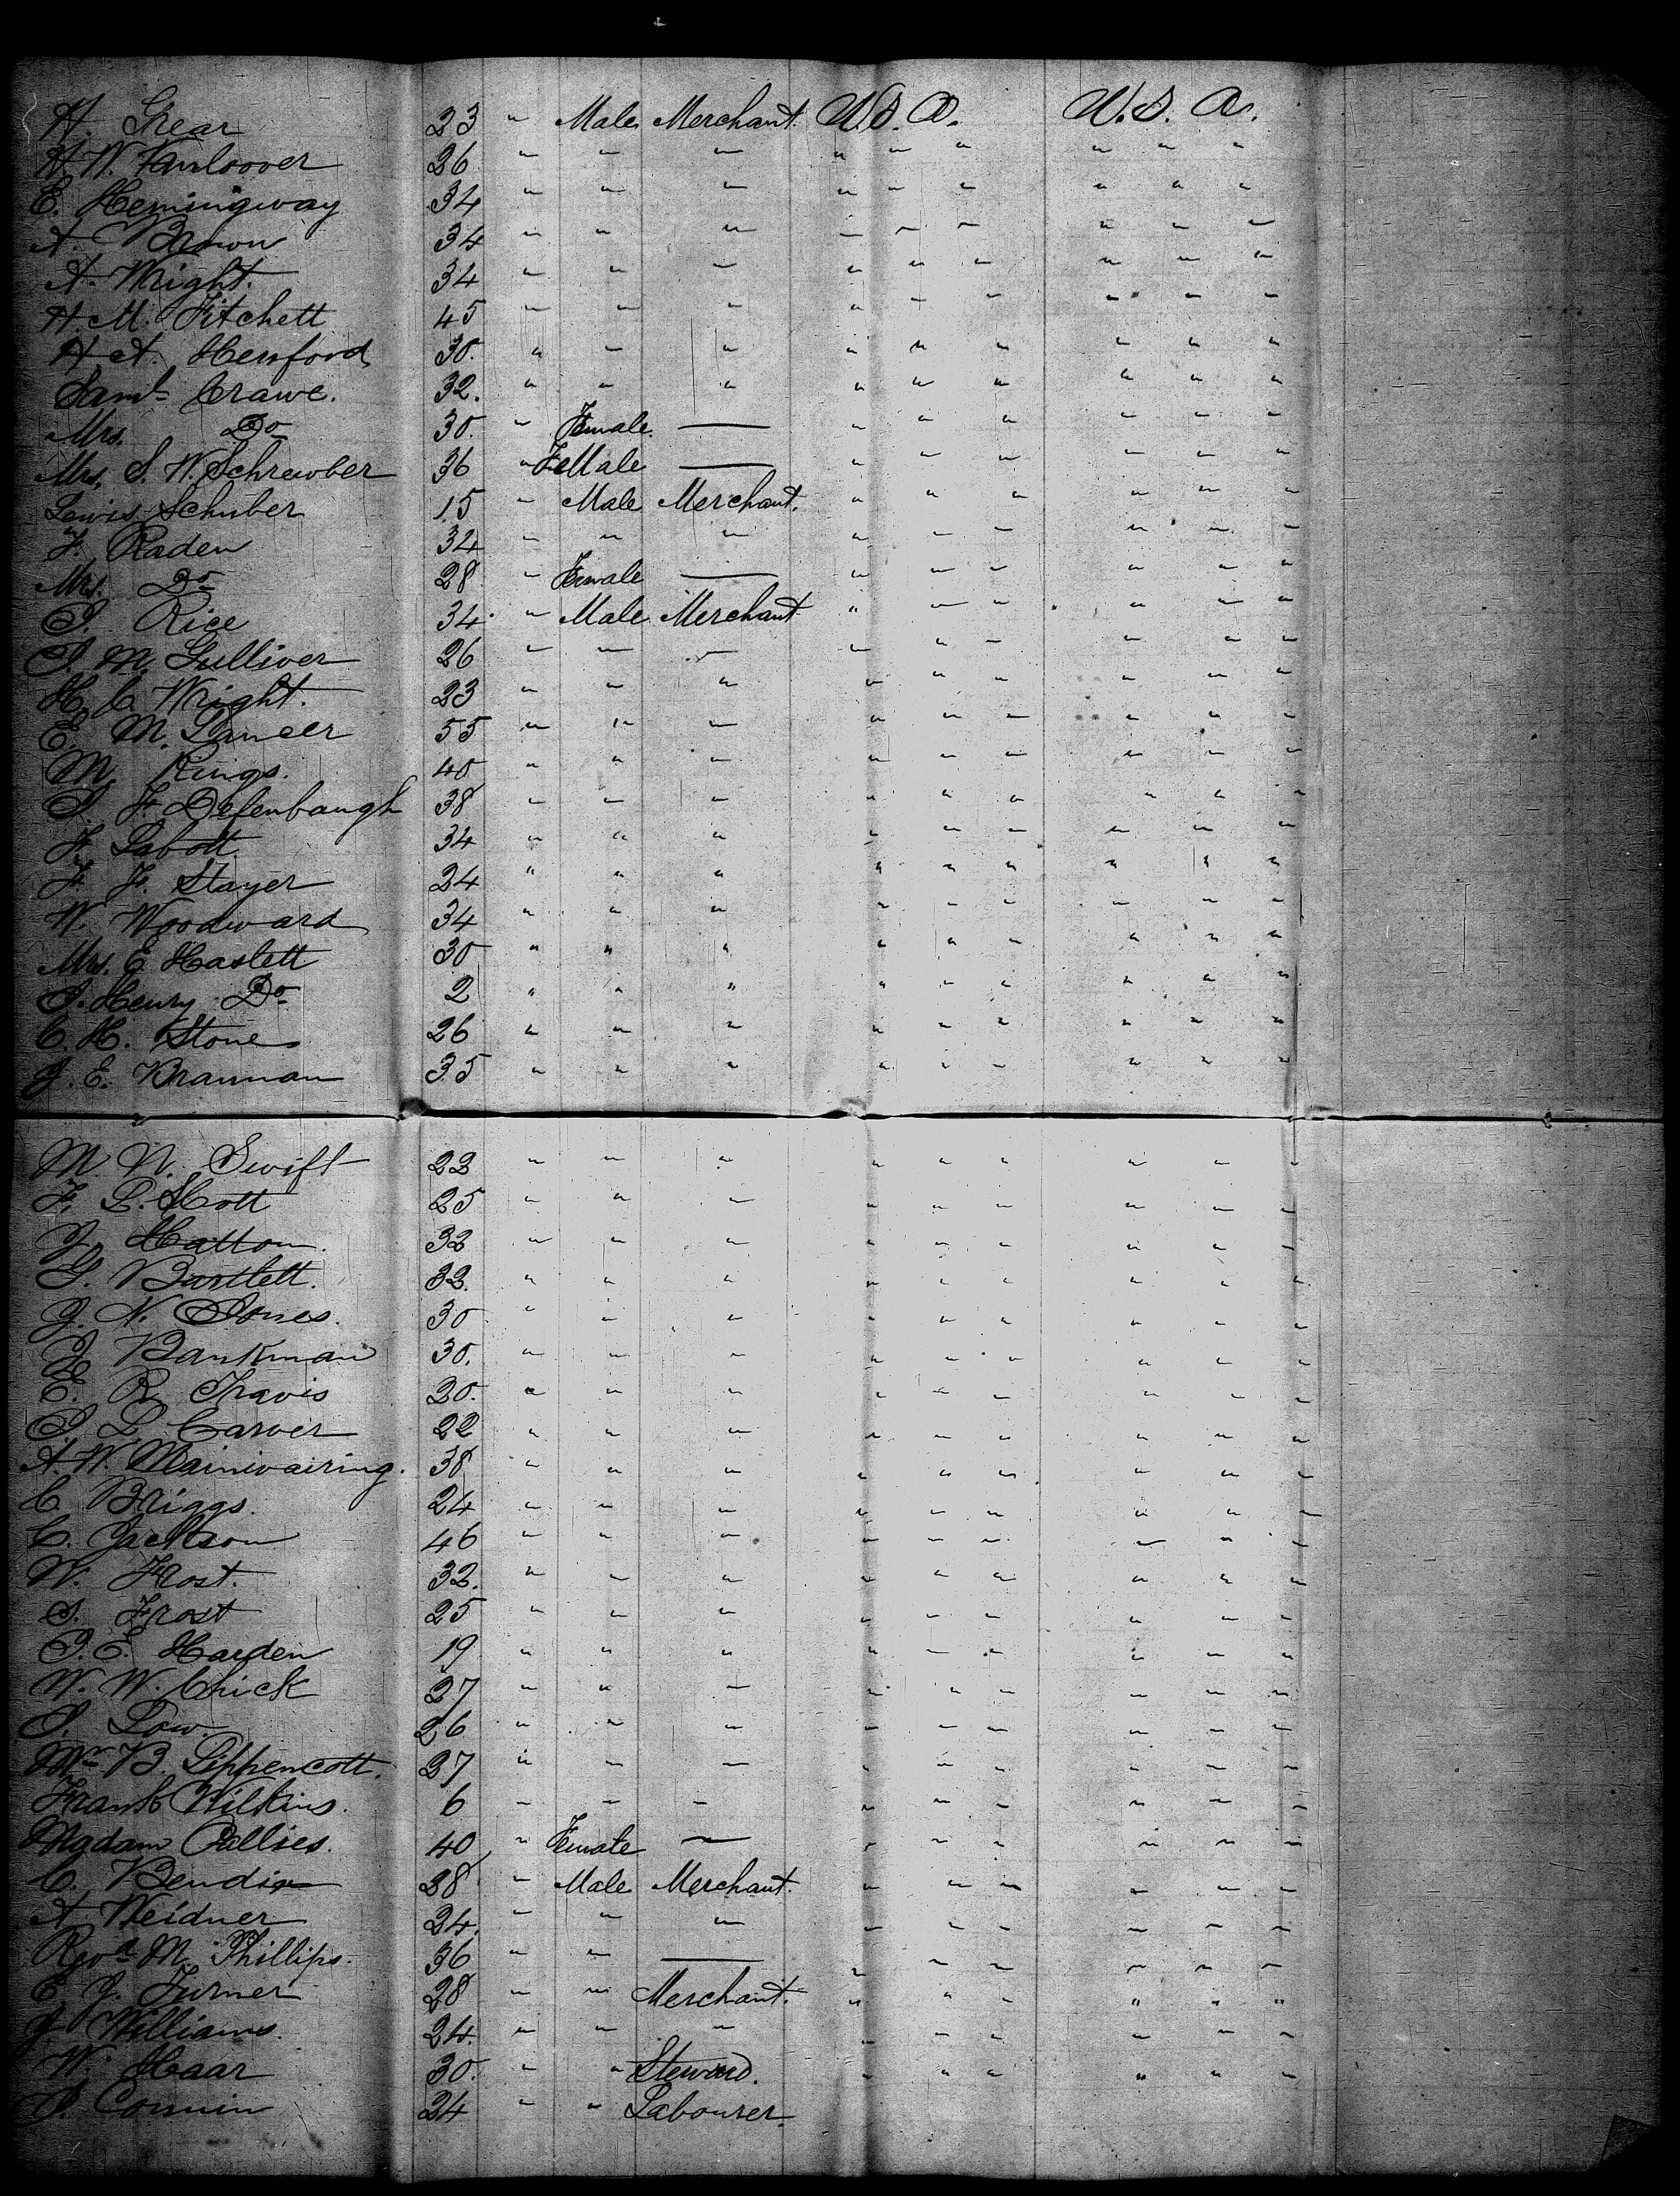 H. Grear 23 " Male Merchant U.S.A. U.S.A.
H. W. Vanloover 26 " " " " " " " " "
E. Hemingway 34 " " " " " " " " "
A. Brown 34 " " " " " " " " "
A. Wright. 34 " " " " " " " " "
H. M. Fitchett 45 " " " " " " " " "
H. A. Hersford 30. " " " " " " " " "
Saml. Crawe. 32. " " " " " " " " "
Mrs. Do 30. " Female. — " " " " " "
Mrs. S. W. Schrewber 36 " FeMale — " " " " " "
Lewis Schuber 15 " Male Merchant. " " " " " "
J. Raden 34 " " " " " " " " "
Mrs. Do 28 " Female — " " " " " "
J. Rice 34. " Male Merchant " " " " " "
J. M. Gulliver 26 " " " " " " " " "
H. C. Wright. 23 " " " " " " " " "
E. M. Lancer 55 " " " " " " " " "
M. Rings. 40 " " " " " " " " "
J. F. Defenbaugh 38 " " " " " " " " "
F. Labott. 34 " " " " " " " " "
F. F. Stayer 24 " " " " " " " " "
W. Woodward 34 " " " " " " " " "
Mrs. E. Haslett 30 " " " " " " " " "
J. Henry Do 2 " " " " " " " " "
C. H. Stone 26 " " " " " " " " "
J. E. Brannan 35 " " " " " " " " "
M. N. Swift 22 " " " " " " " " "
F. L. Mott 25 " " " " " " " " "
J. Hatton. 32 " " " " " " " " "
G. Bartlett. 32. " " " " " " " " "
J. N. Jones. 30 " " " " " " " " "
J. Bankman 30. " " " " " " " " "
E. R. Travis 20. " " " " " " " " "
J. L. Carver 22 " " " " " " " " "
A. W. Mainwairing. 38 " " " " " " " " "
C. Briggs. 24 " " " " " " " " "
C. Jackson 46 " " " " " " " " "
W. Frost. 32. " " " " " " " " "
S. Frost 25 " " " " " " " " "
J. E. Harden 19 " " " " " " " " "
W. W. Chick 27 " " " " " " " " "
J. Low. 26 " " " " " " " " "
Mr. B. Lippencott. 37 " " " " " " " " "
Frank Wilkins. 6 " " " " " " " " "
Madam Callies. 40 " Female — " " " " " "
C. Bendix 38 " Male Merchant. " " " " " "
A. Weidner 24. " " " " " " " " "
Revd. M. Phillips. 36 " " — " " " " " "
E. J. Turner 28 " " Merchant. " " " " " "
J. Williams. 24. " " " " " " " " "
W. Haar 30. " " Steward. " " " " " "
J. 24 " " Labourer.